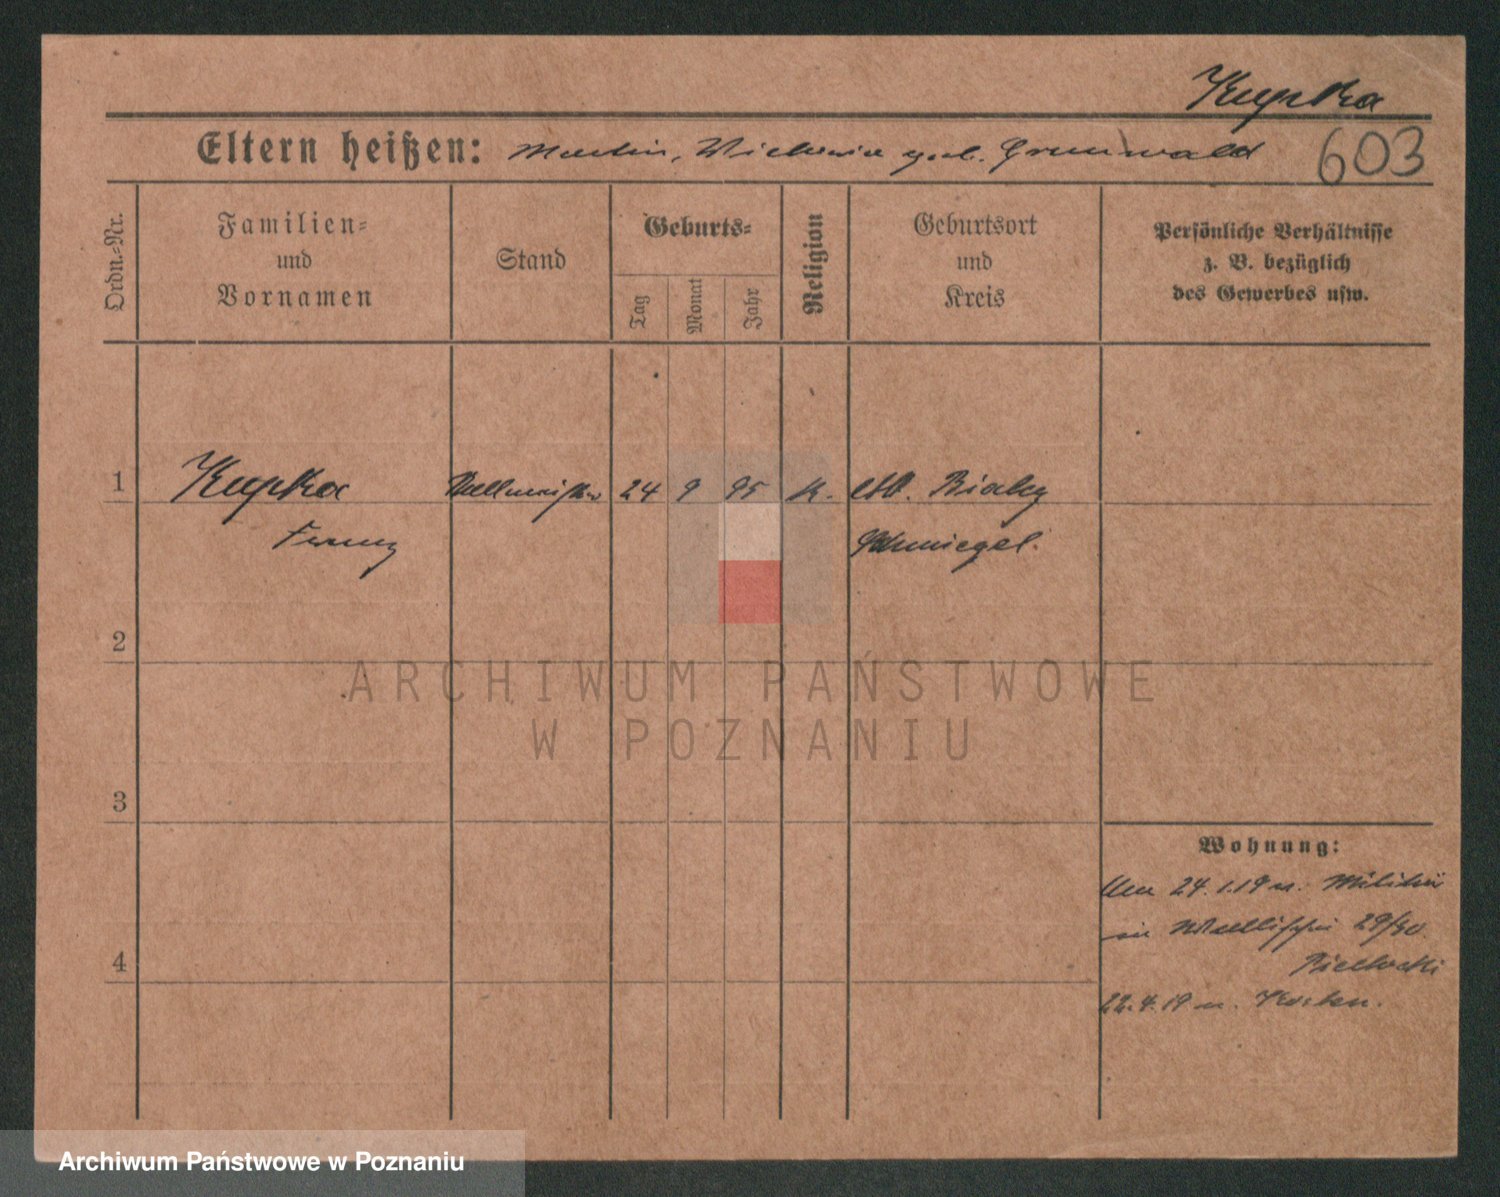 Kupka
Eltern heißen: Martin, Victoria geb. Grunwald 603
Ordn.-Nr.
Familien-
und
Vornamen
Stand
Geburts-
Tag
Monat
Jahr
Religion
Geburtsort
und
Kreis
Persönliche Verhältnisse
z. B. bezüglich
des Gewerbes usw.
1 Kupka 24 9 95 K. Bialcz
Franz Schmiegel.
2
ARCHIWUM PAŃSTWOWE
W POZNANIU
3
Wohnung:
24.1.19 v. Militär
in Wallischei 29/30
4
22.4.19 n. Kosten.
Archiwum Państwowe w Poznaniu